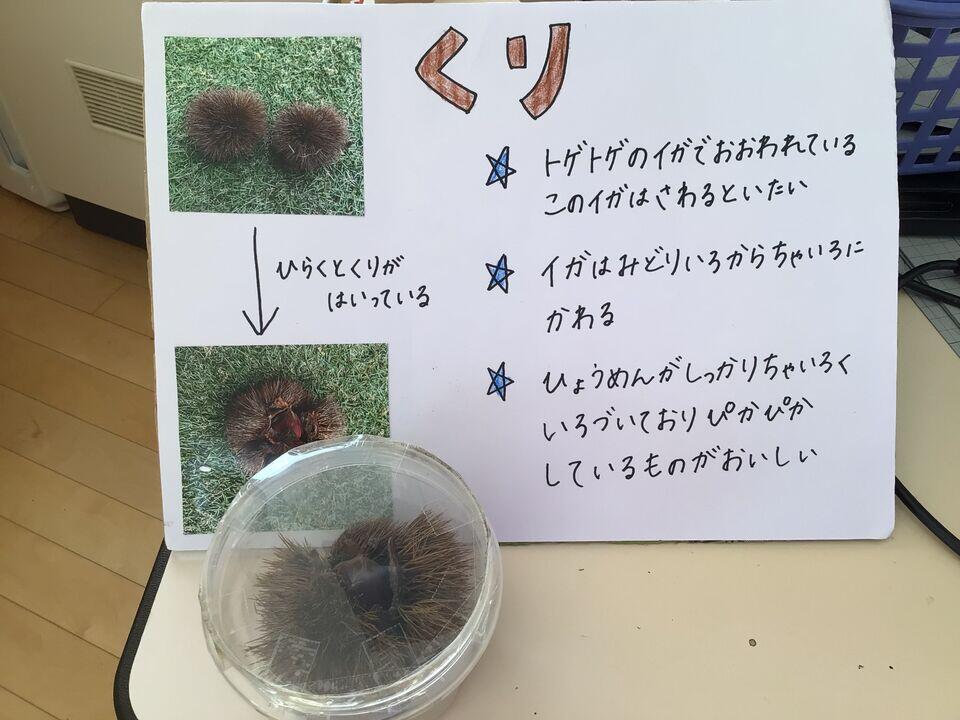 くり
トゲトゲのイガでおおわれている
このイガはさわるといたい
ひらくとくりが
はいっている
イガはみどりいろからちゃいろに
かわる
ひょうめんがしっかりちゃいろく
いろづいており ぴかぴか
しているものがおいしい